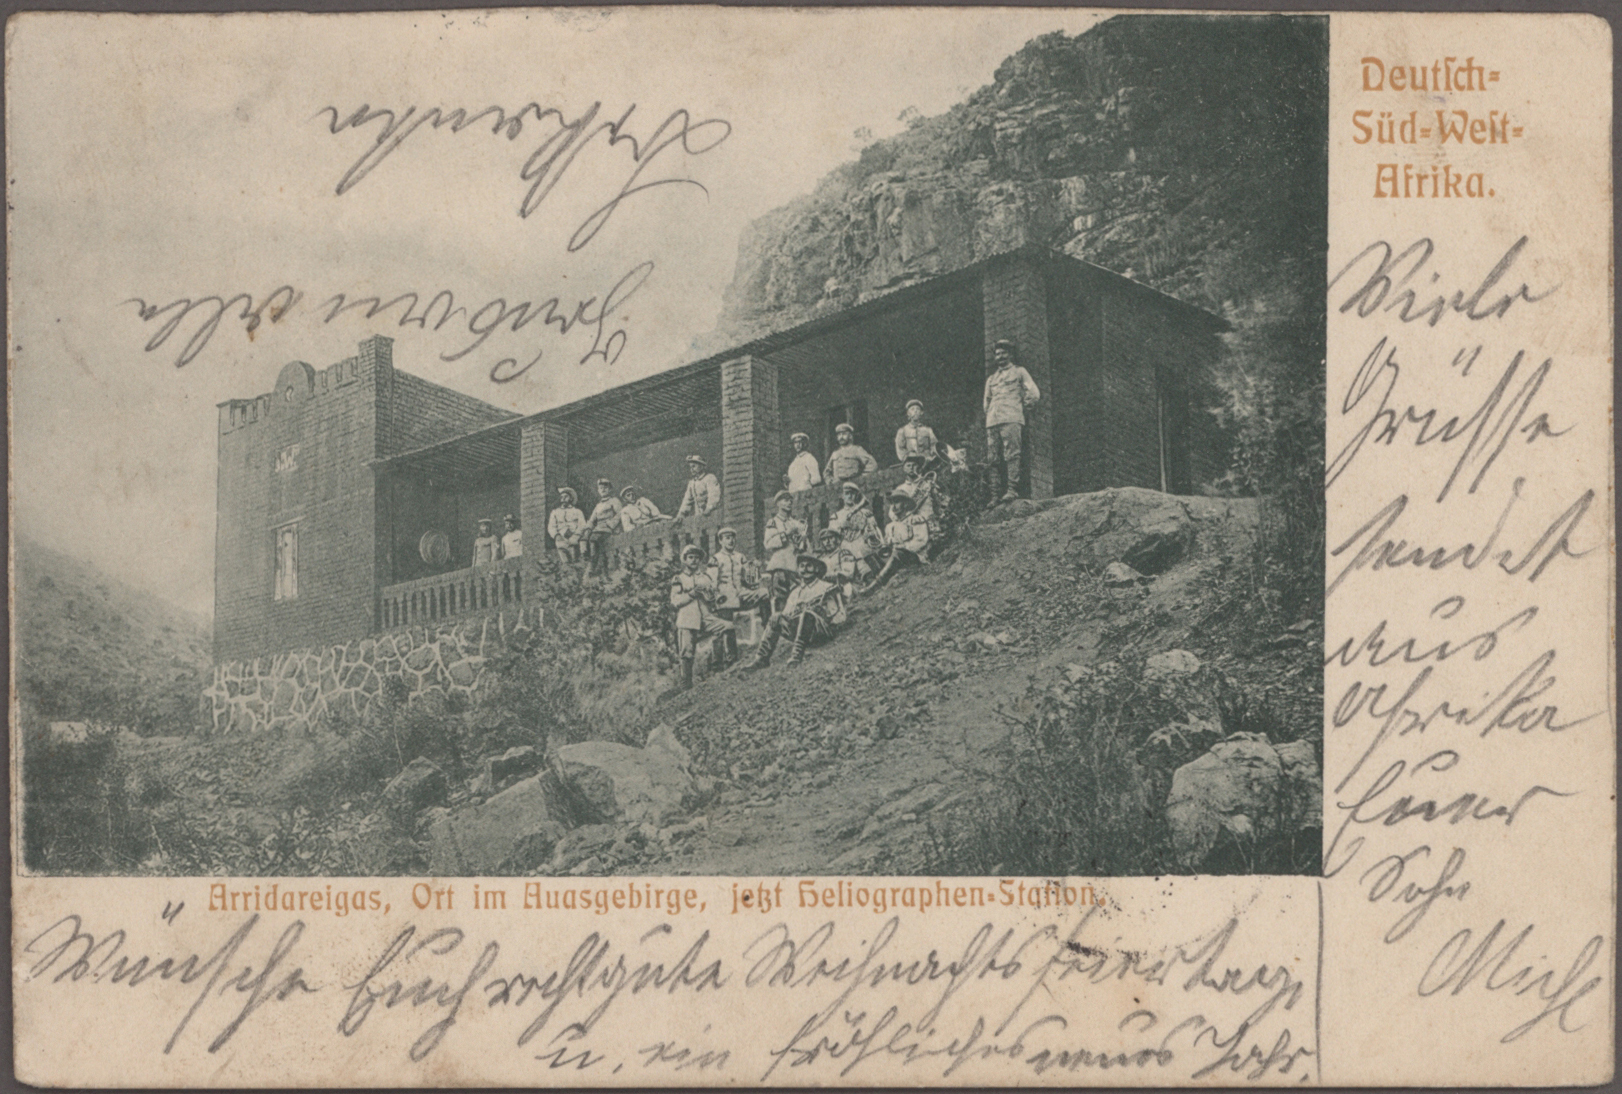 Deutsch-
Süd-West-
Afrika.
Viele
Grüsse
sendet
aus
Afrika
Euer
Sohn
Michl
Arridareigas, Ort im Auasgebirge, jetzt Heliographen-Station.
Wünsche Euch recht gute Weihnachtsfeiertage,
u. ein fröhliches neues Jahr.